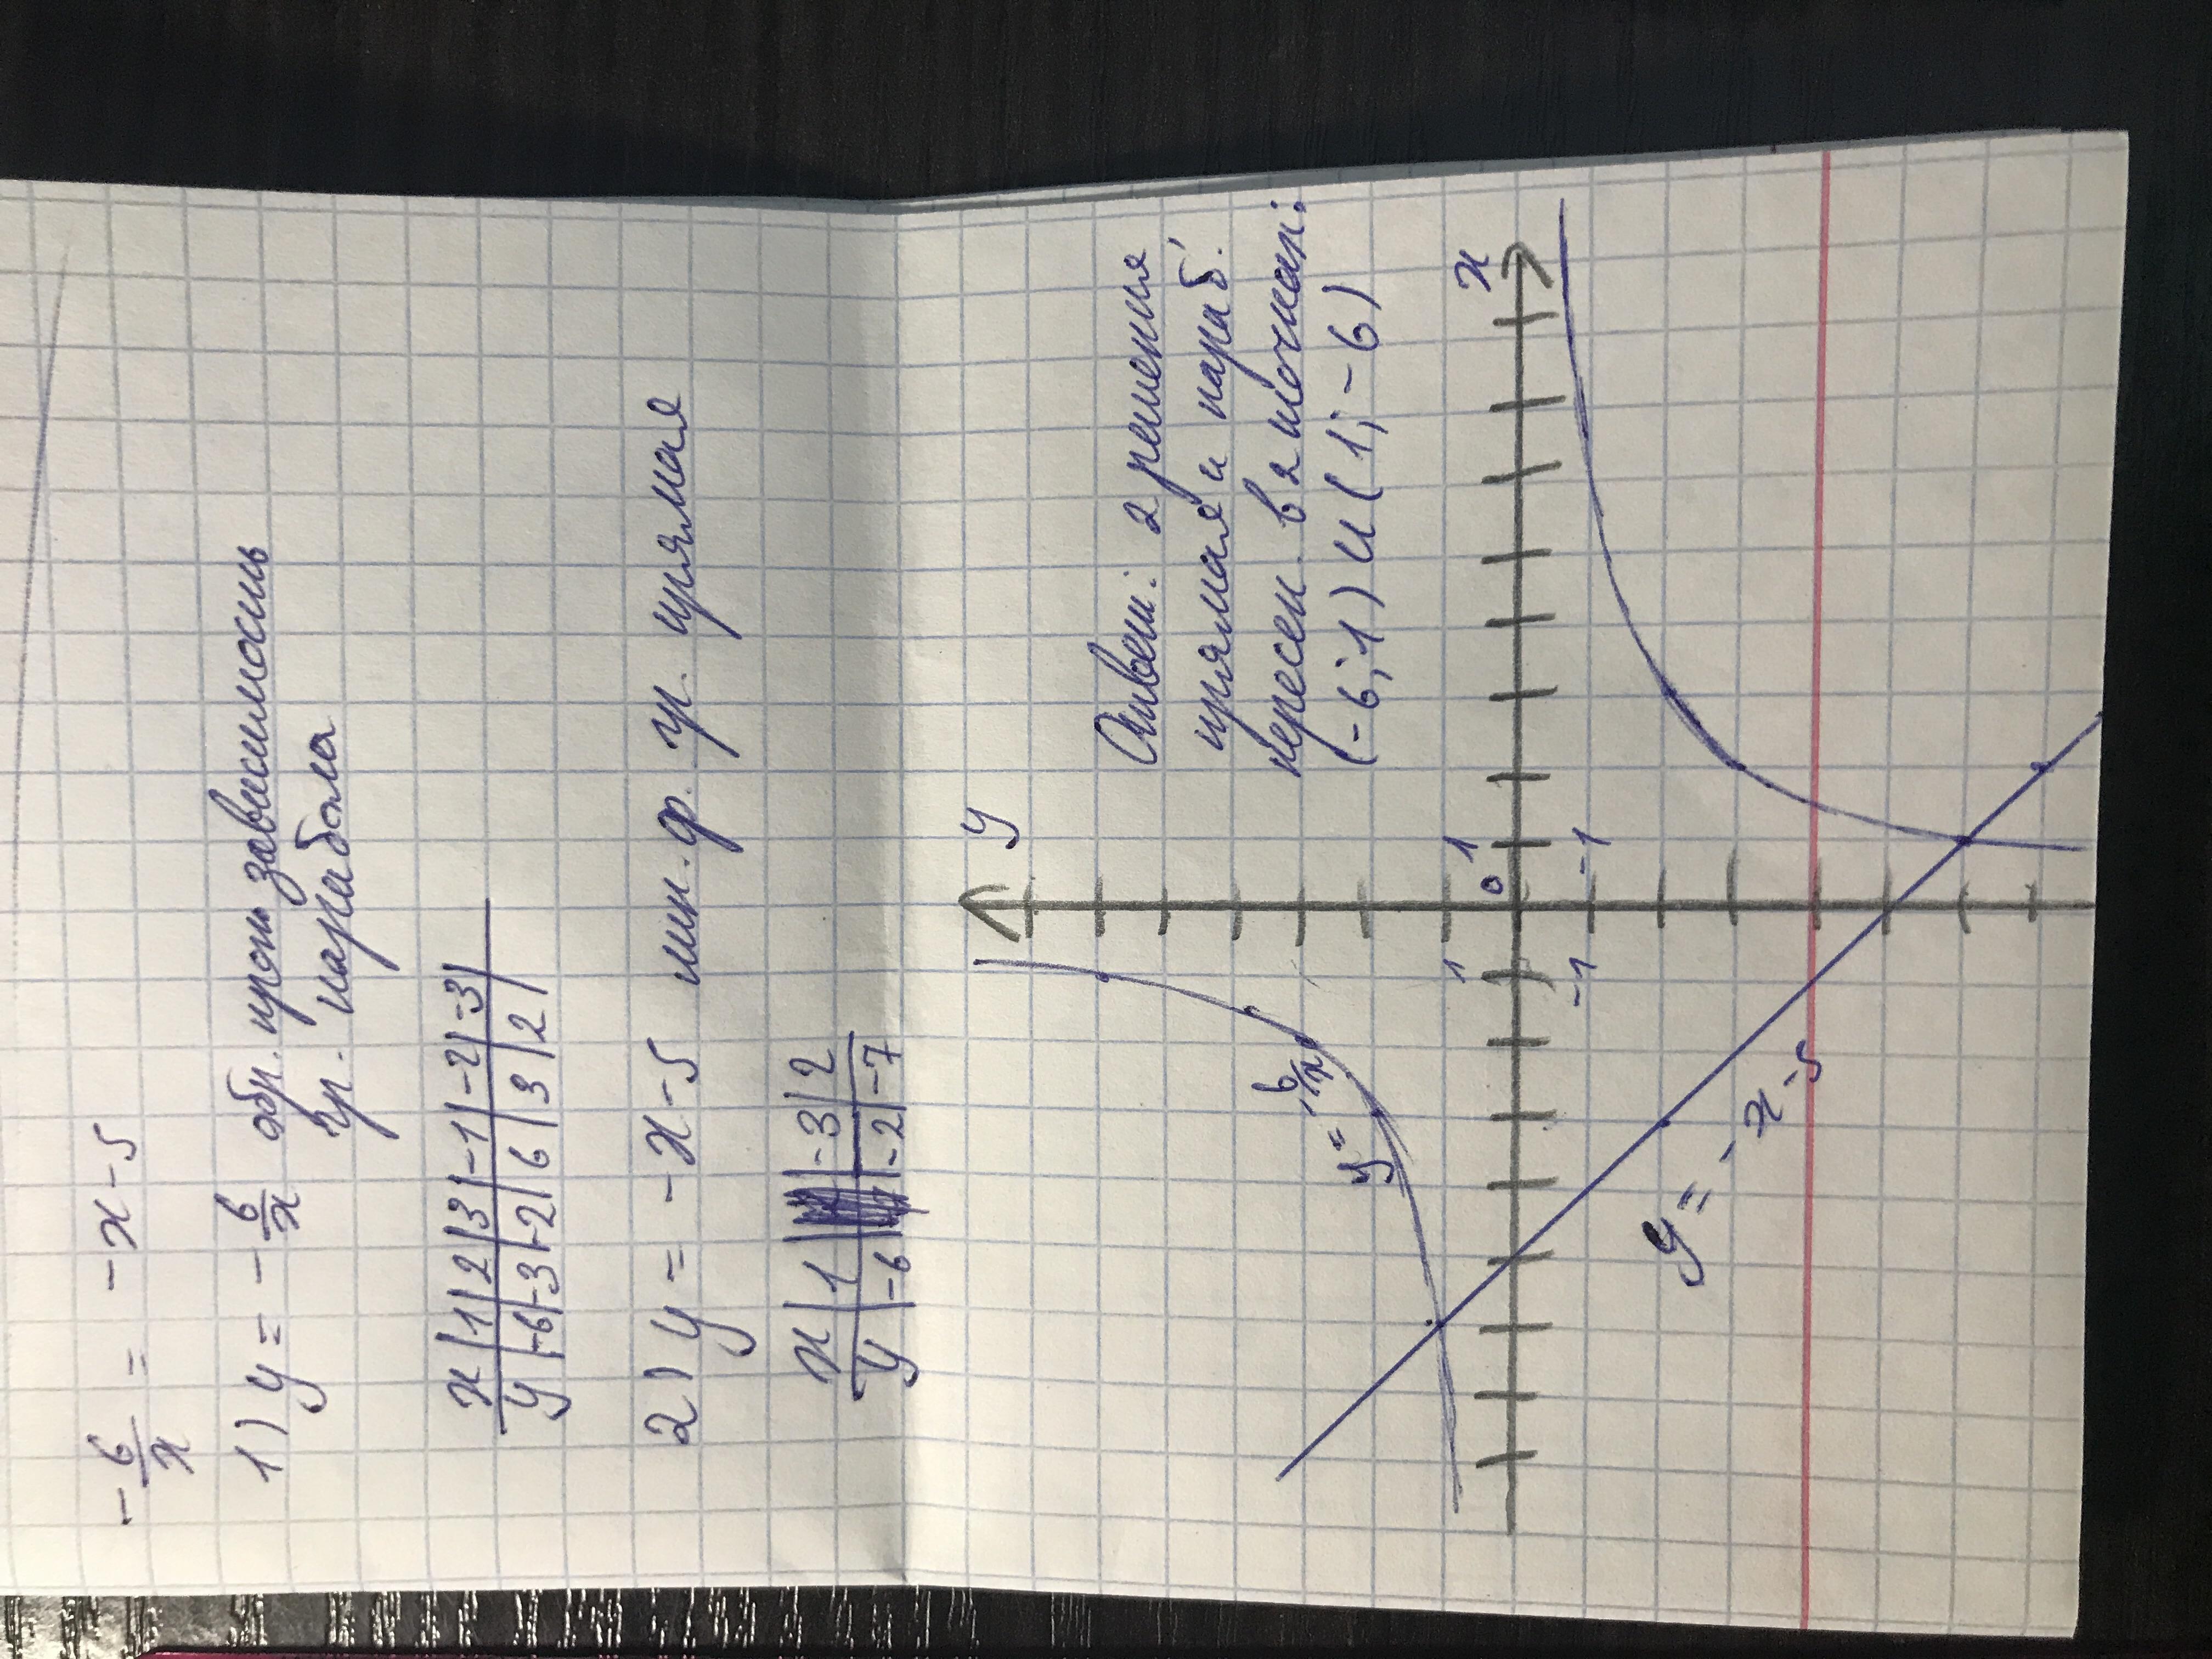 -6/x = -x-5
1) y = -6/x обр. проп зависимость
гр. парабола
x | 1 | 2 | 3 | -1 | -2 | -3
y | -6 | -3 | -2 | 6 | 3 | 2 |
2) y = -x-5 лин. ф. гр. прямая
x | 1 | -3 | 2
y | -6 | -2 | -7
Ответ: 2 решения
прямая и параб.
пересек. в 2 точках:
(-6; 1) и (1; -6)
y
x
1
0
1
-1
-1
y = -6/x
y = -x-5